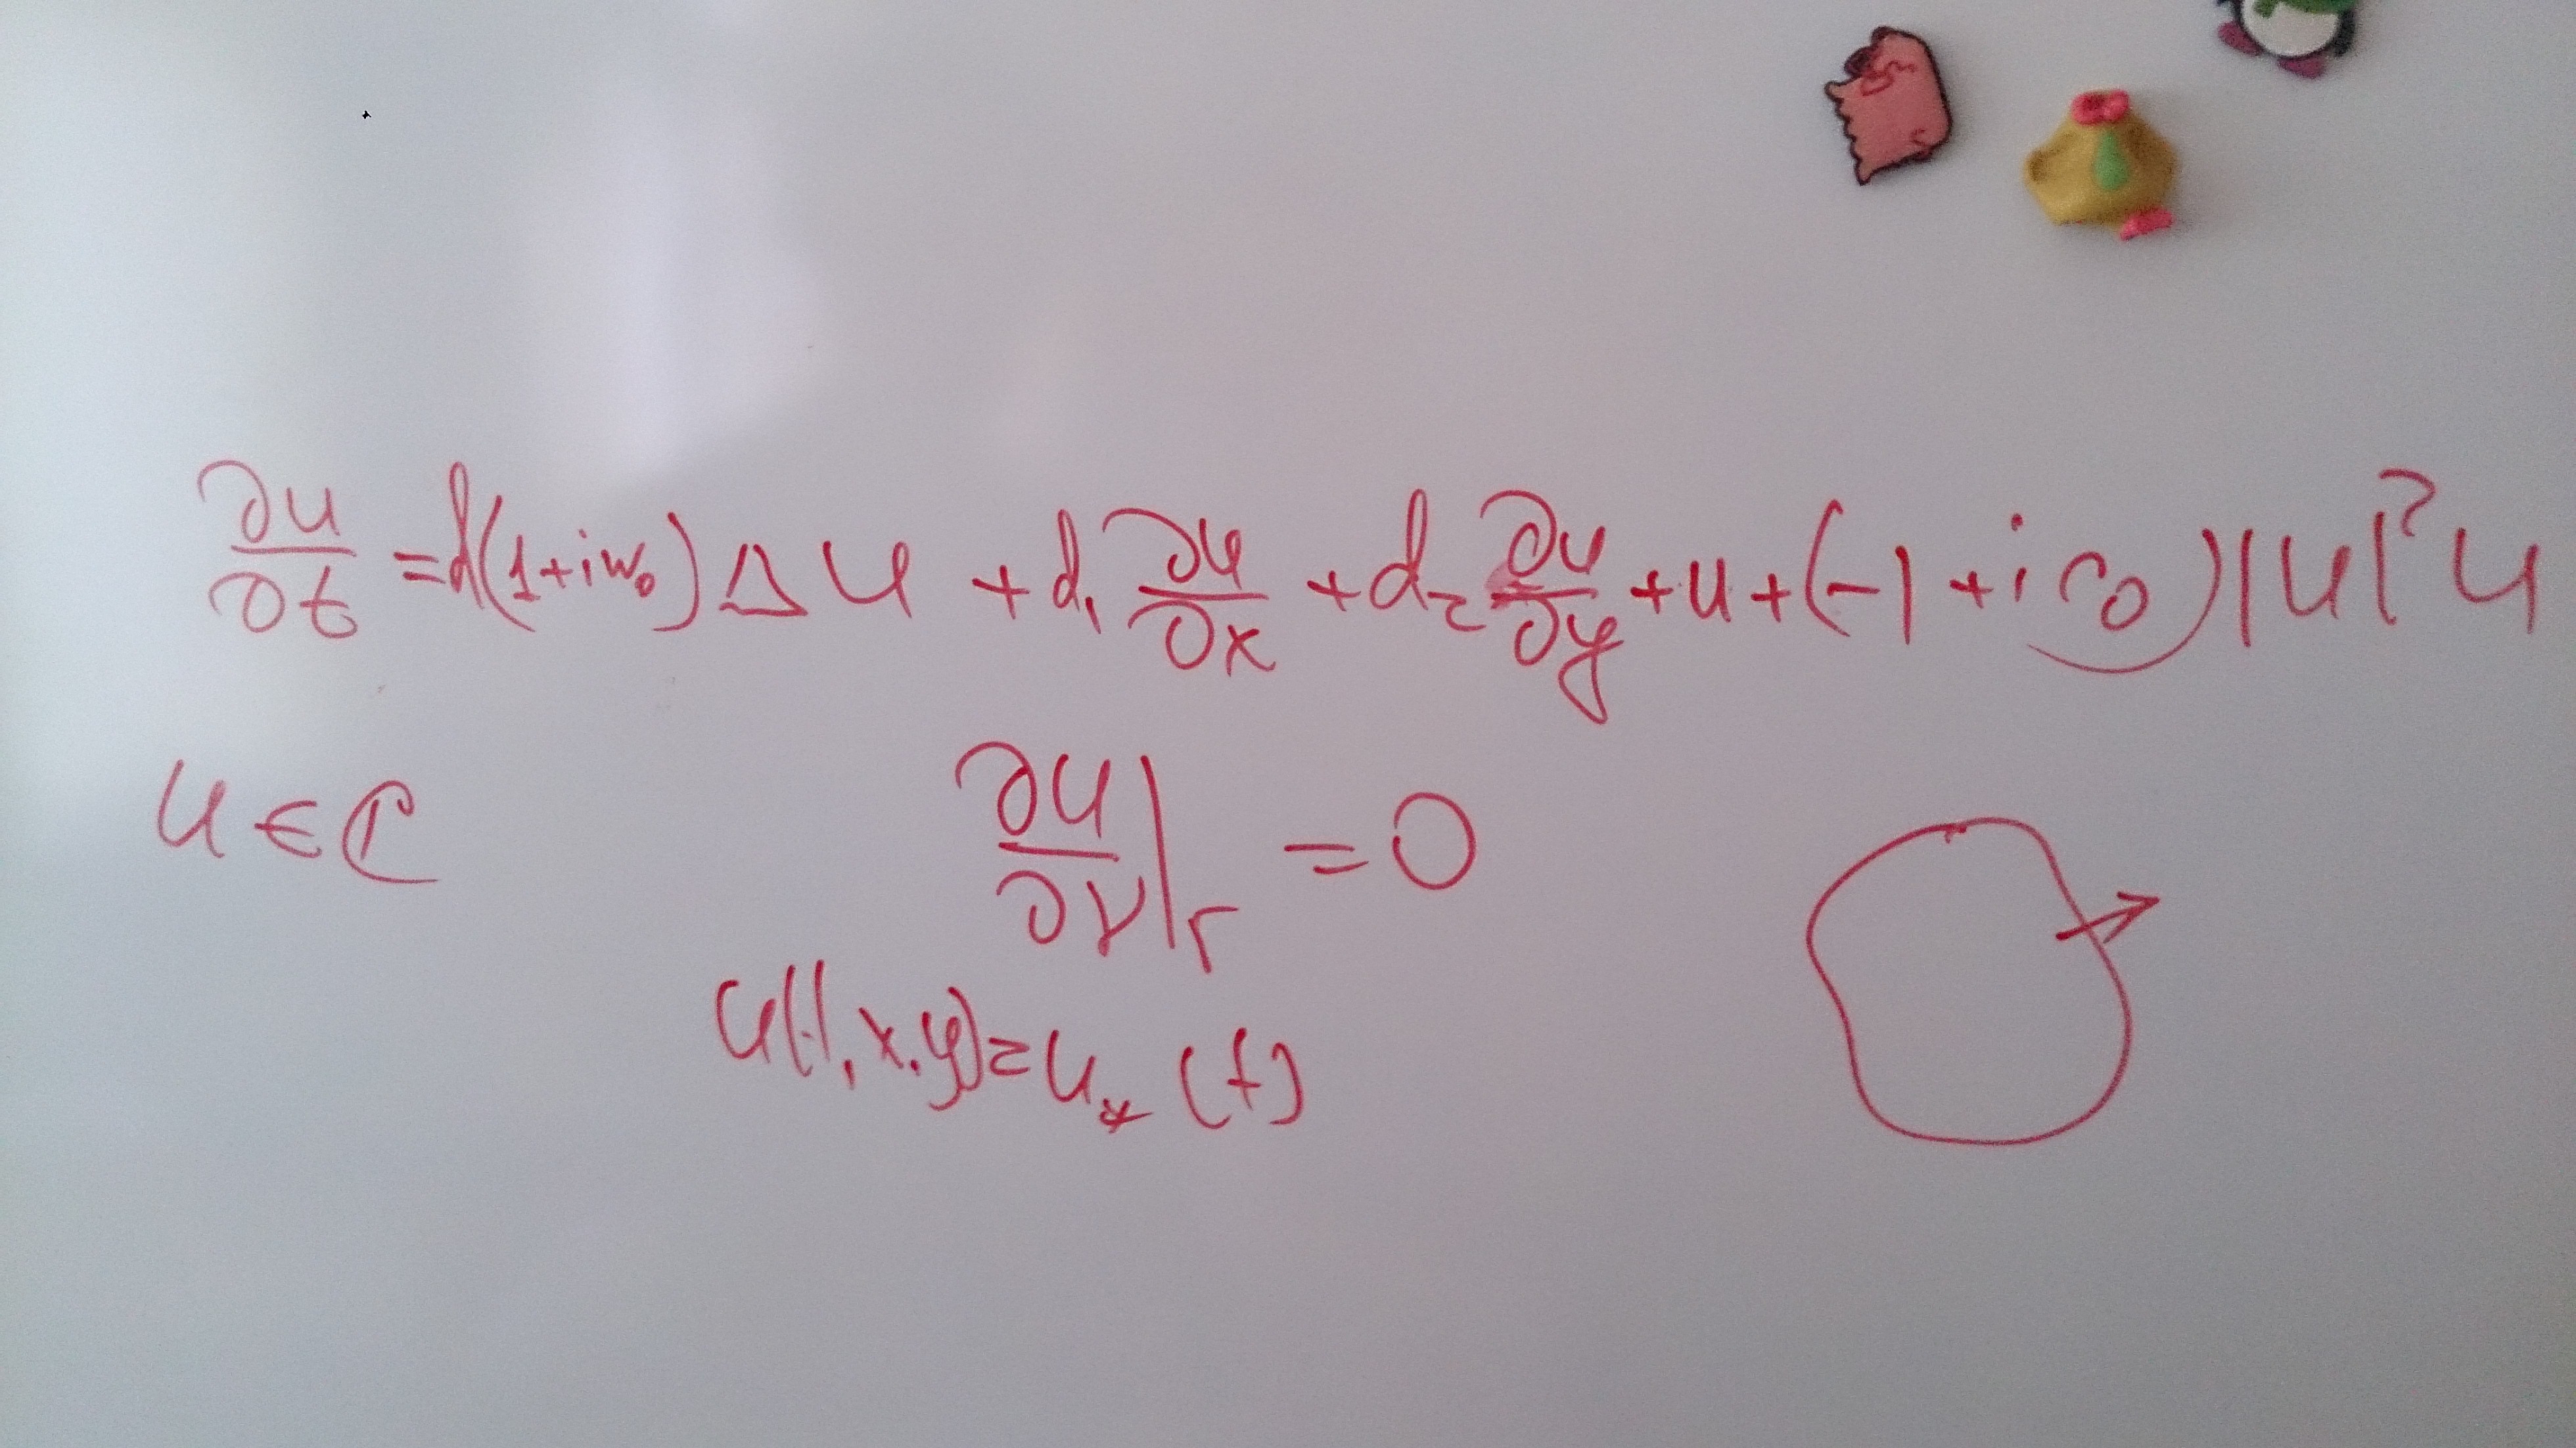 ∂u/∂t = d(1+iω₀)Δu + d₁ ∂u/∂x + d₂ ∂u/∂y + u + (-1 + i c₀)|u|²u
u ∈ ℂ
∂u/∂ν|_Γ = 0
u(t, x, y) = u_*(t)